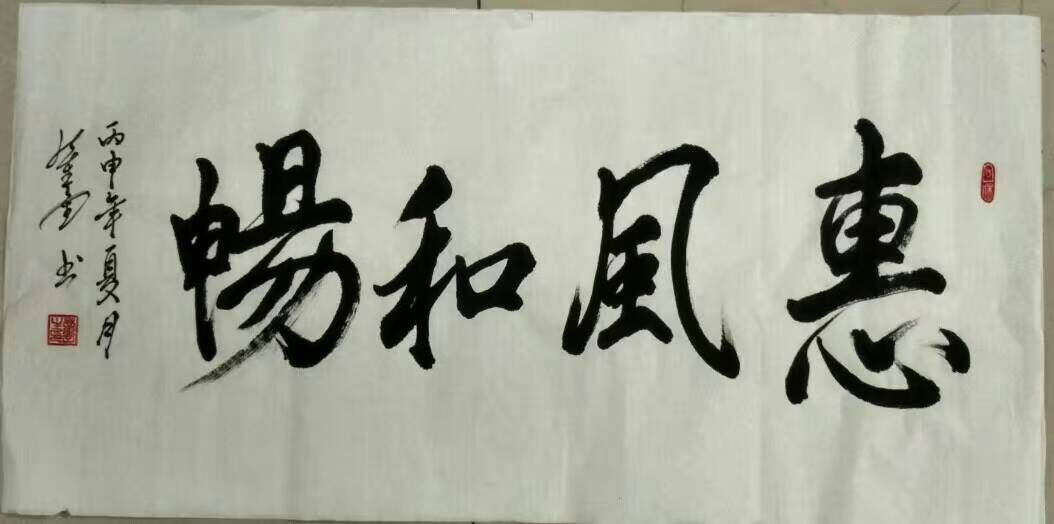 惠風和暢
丙申年夏月
書